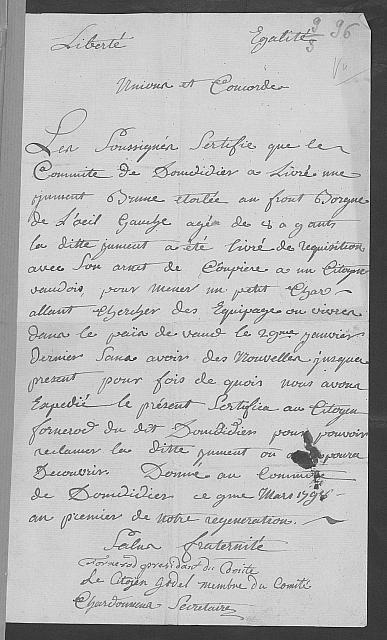 Liberté Egalité 9/3 96
Unions et Concorde
Les Soussignés Sertifie que le
Committe de Domdidier a Livré une
jument Brune étoilée au front Borgne
de L'oeil Gauche agée de 8 a 9 ants
la ditte jument a été livré de requisition
avec son arnet de Coupiere a un Citoyen
vaudois, pour mener un petit Char
allant Chercher des Equipage ou vivres
dans le païs de vaud le 29me janvier
dernier Sans avoir des Nouvelles jusqua
present pour fois de quois nous avons
Expedié le présent Sertifica au Citoyen
fornerod du dit Domdidier pour pouvoir
reclamer la ditte jument ou poura
Decouvrir. Donné au Committe
de Domdidier ce 9me Mars 1798
an premier de notre regeneration.
Salus fraternité
Fornerod president du Comité
Le Citoyen Godel membre du Comité
Chardonnens Secretaire